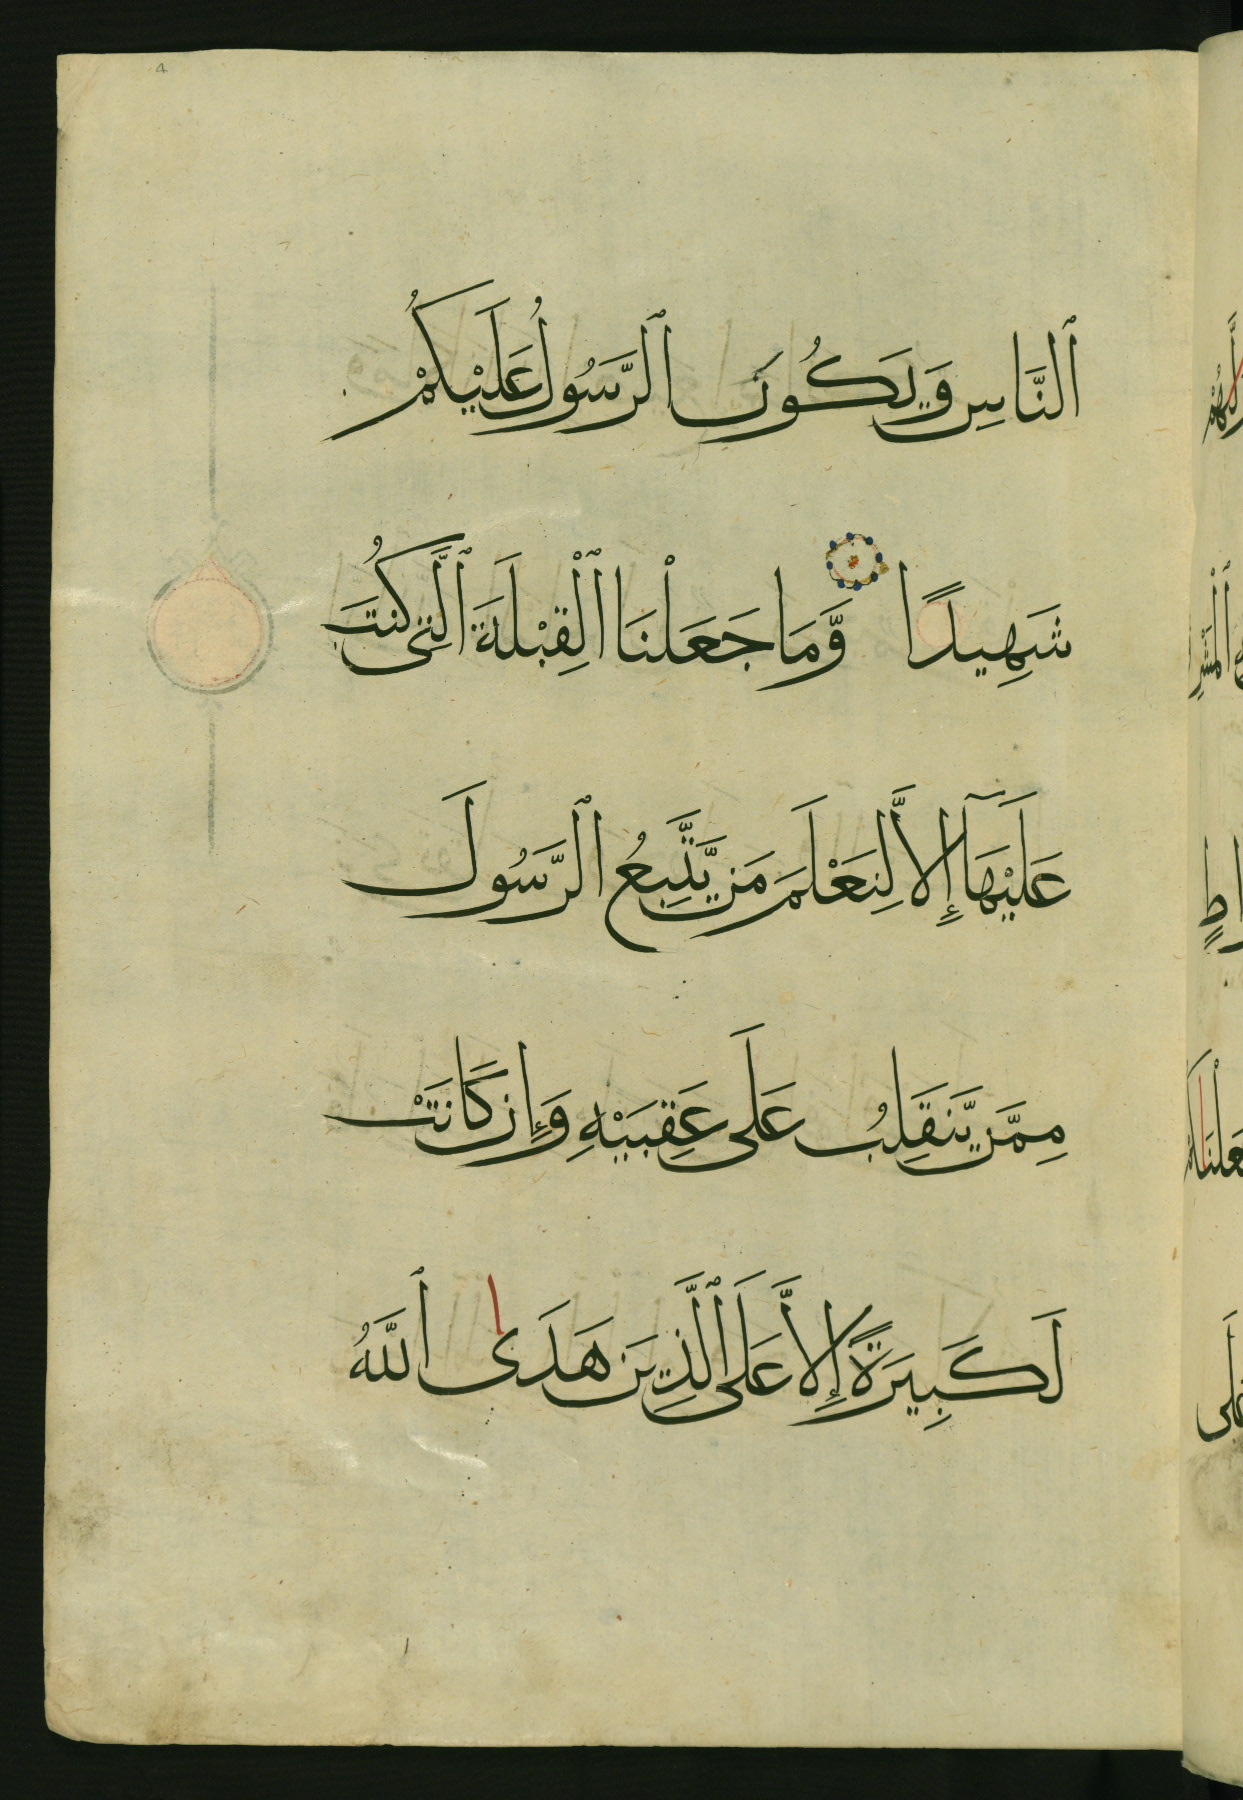 ٱلنَّاسِ وَيَكُونَ ٱلرَّسُولُ عَلَيْكُمْ
شَهِيدًا وَّمَا جَعَلْنَا ٱلْقِبْلَةَ ٱلَّتِى كُنتَ
عَلَيْهَآ إِلَّا لِنَعْلَمَ مَن يَّتَّبِعُ ٱلرَّسُولَ
مِمَّن يَّنقَلِبُ عَلَى عَقِبَيْهِ وَإِن كَانَتْ
لَكَبِيرَةً إِلَّا عَلَى ٱلَّذِينَ هَدَى ٱللَّهُ